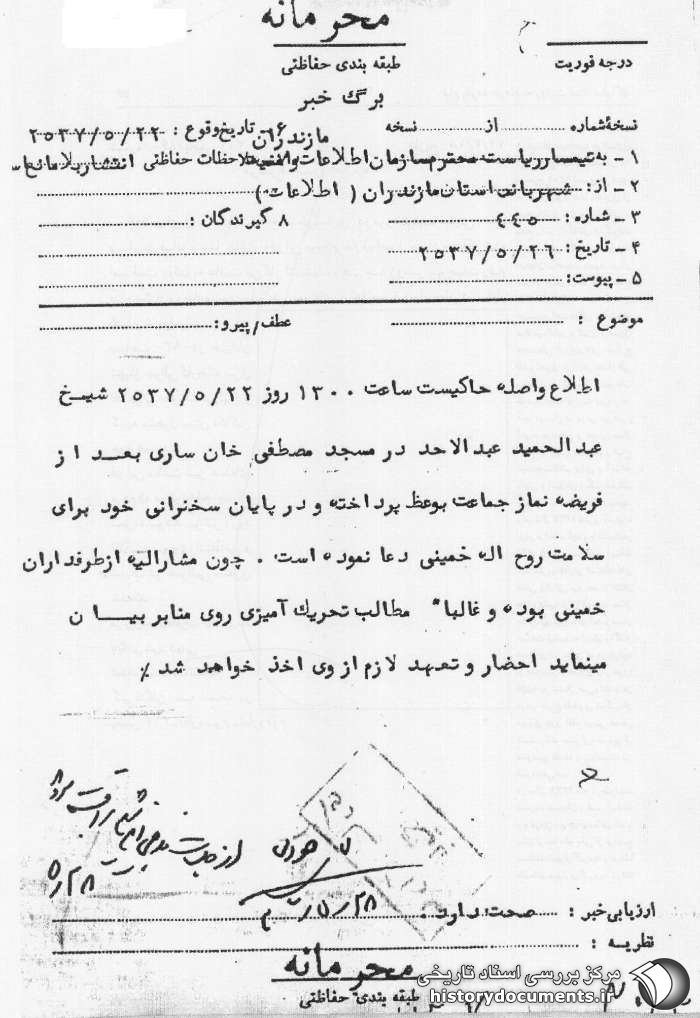 محرمانه
طبقه بندی حفاظتی
درجه فوریت
برگ خبر
نسخهٔشماره .......... از .......... نسخه
۶ - تاریخ وقوع : ۲۵۳۷/۵/۲۲
مازندران
۱ - به تیمسار ریاست محترم سازمان اطلاعات و امنیت
ملاحظات حفاظتی
۲ - از: شهربانی استان مازندران ( اطلاعات )
۳ - شماره : ۴۴۵
۸ گیرندگان :
۴ - تاریخ : ۲۵۳۷/۵/۲۶
۵ - پیوست:
موضوع :
عطف/پیرو:
اطلاع واصله حاکیست ساعت ۱۳۰۰ روز ۲۵۳۷/۵/۲۲ شیخ
عبدالحمید عبدالاحد در مسجد مصطفی خان ساری بعد از
فریضه نماز جماعت بوعظ پرداخته و در پایان سخنرانی خود برای
سلامت روح اله خمینی دعا نموده است . چون مشارالیه ازطرفداران
خمینی بوده و غالبا" مطالب تحریک آمیزی روی منابر بیان
مینماید احضار و تعهد لازم از وی اخذ خواهد شد ٪
۵/۲۸
ارزیابی خبر : صحت دارد .
نظریه :
محرمانه
طبقه بندی حفاظتی
مرکز بررسی اسناد تاریخی
historydocuments.ir